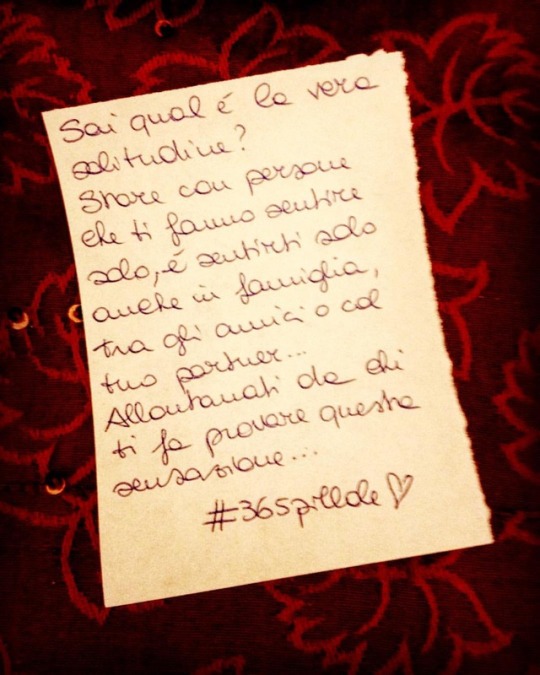 Sai qual é la vera
solitudine?
Stare con persone
che ti fanno sentire
solo, é sentirti solo
anche in famiglia,
tra gli amici o col
tuo partner...
Allontanati da chi
ti fa provare questa
sensazione...
#365pillole♡